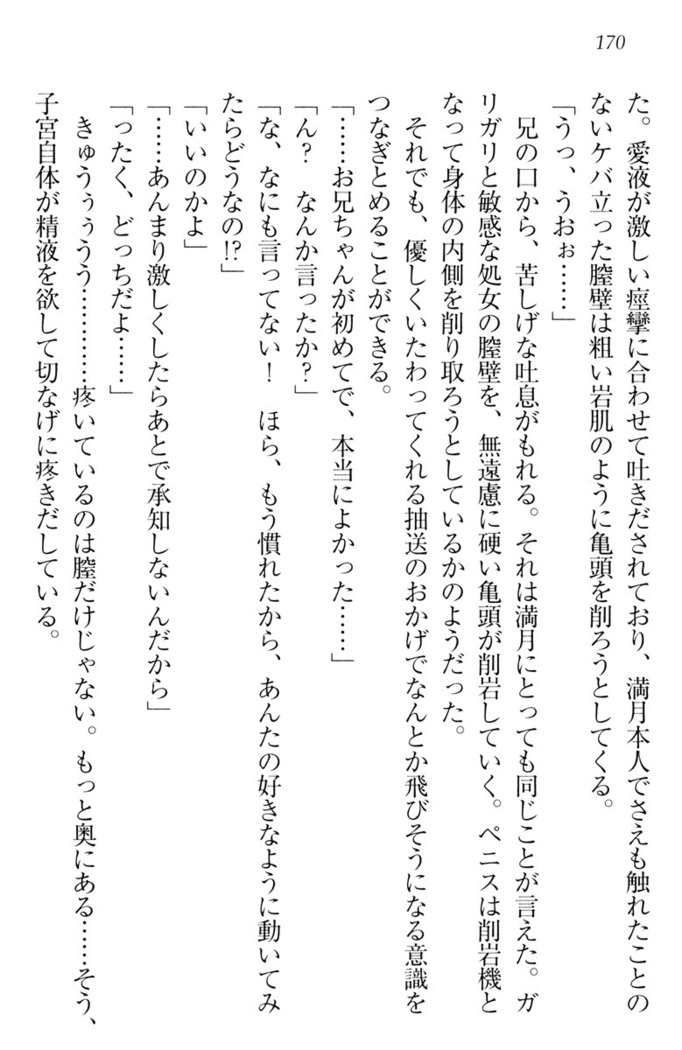 170
た。愛液が激しい痙攣に合わせて吐きだされており、満月本人でさえも触れたことの
ないケバ立った膣壁は粗い岩肌のように亀頭を削ろうとしてくる。
「うっ、うおぉ……」
兄の口から、苦しげな吐息がもれる。それは満月にとっても同じことが言えた。ガ
リガリと敏感な処女の膣壁を、無遠慮に硬い亀頭が削岩していく。ペニスは削岩機と
なって身体の内側を削り取ろうとしているかのようだった。
それでも、優しくいたわってくれる抽送のおかげでなんとか飛びそうになる意識を
つなぎとめることができる。
「……お兄ちゃんが初めてで、本当によかった……」
「ん?　なんか言ったか?」
「な、なにも言ってない!　ほら、もう慣れたから、あんたの好きなように動いてみ
たらどうなの!?」
「いいのかよ」
「……あんまり激しくしたらあとで承知しないんだから」
「ったく、どっちだよ……」
きゅうぅぅうう…………疼いているのは膣だけじゃない。もっと奥にある……そう、
子宮自体が精液を欲して切なげに疼きだしている。